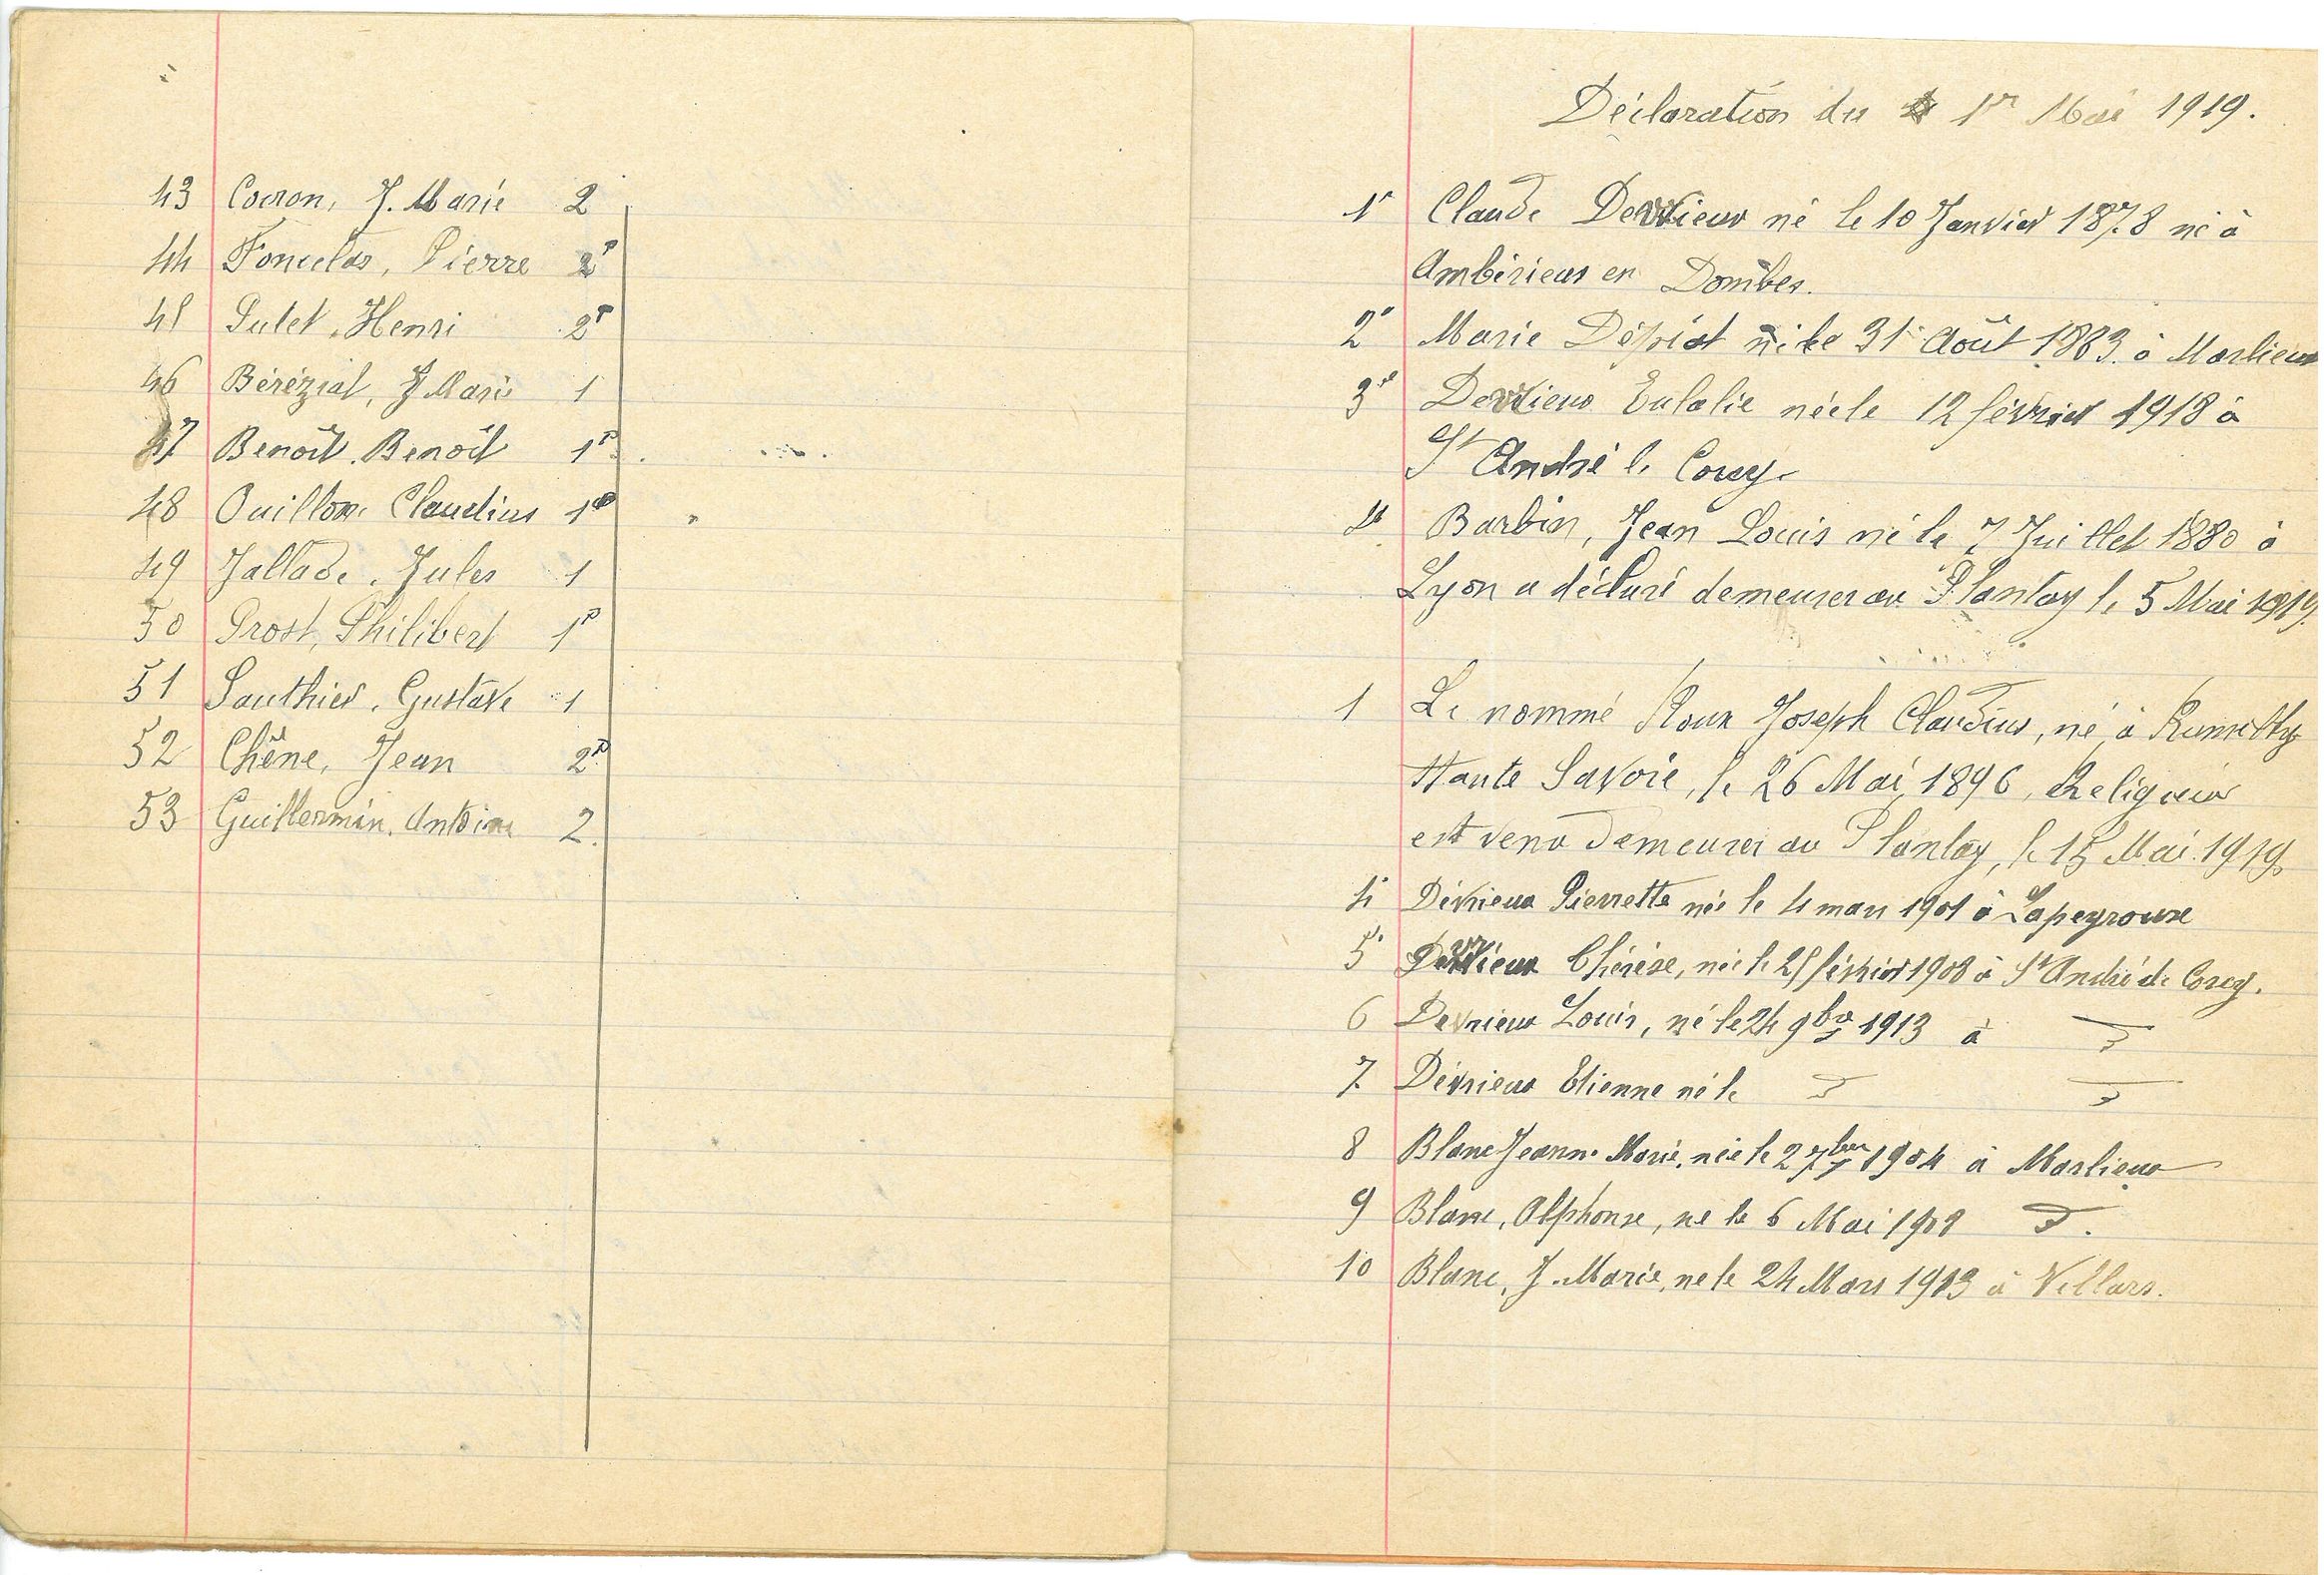 43 Cocron, J. Marie 2
44 Foncelas, Pierre 2P
45 Putet, Henri 2P
46 Bérézial, J Marie 1
47 Benoît, Benoît 1P
48 Ouillon, Claudius 1P
49 Jallade, Jules 1
50 Prost, Philibert 1P
51 Sauthier, Gustave 1
52 Chêne, Jean 2P
53 Guillermin, Antoine 2.
Déclaration du 1er Mai 1919.
1° Claude Devrieux né le 10 Janvier 1878 né à
Ambérieux en Dombes.
2° Marie née le 31 Août 1883 à Marlieux
3° Devrieux Eulalie née le 12 février 1918 à
St André le Corcy.
4 Barbin, Jean Louis né le 7 Juillet 1880 à
Lyon a déclaré demeurer au Plantay le 5 Mai 1919.
1 Le nommé Roux Joseph Claudius, né à Rumilly
Haute Savoie, le 26 Mai 1896, Religieux
est venu demeurer au Plantay, le 15 Mai 1919
4° Dévrieux Pierrette née le 4 mars 1901 à Lapeyrouse
5° Devrieux Thérèse, née le 25 février 1908 à St André de Corcy.
6 Devrieux Louis, né le 24 9bre 1913 à d°
7 Dévrieux Etienne né le d° d°
8 Blanc Jeanne Marie, née le 2 7bre 1904 à Marlieux
9 Blanc, Alphonse, né le 6 Mai 1908 d°.
10 Blanc, J. Marie, né le 24 Mars 1913 à Villars.